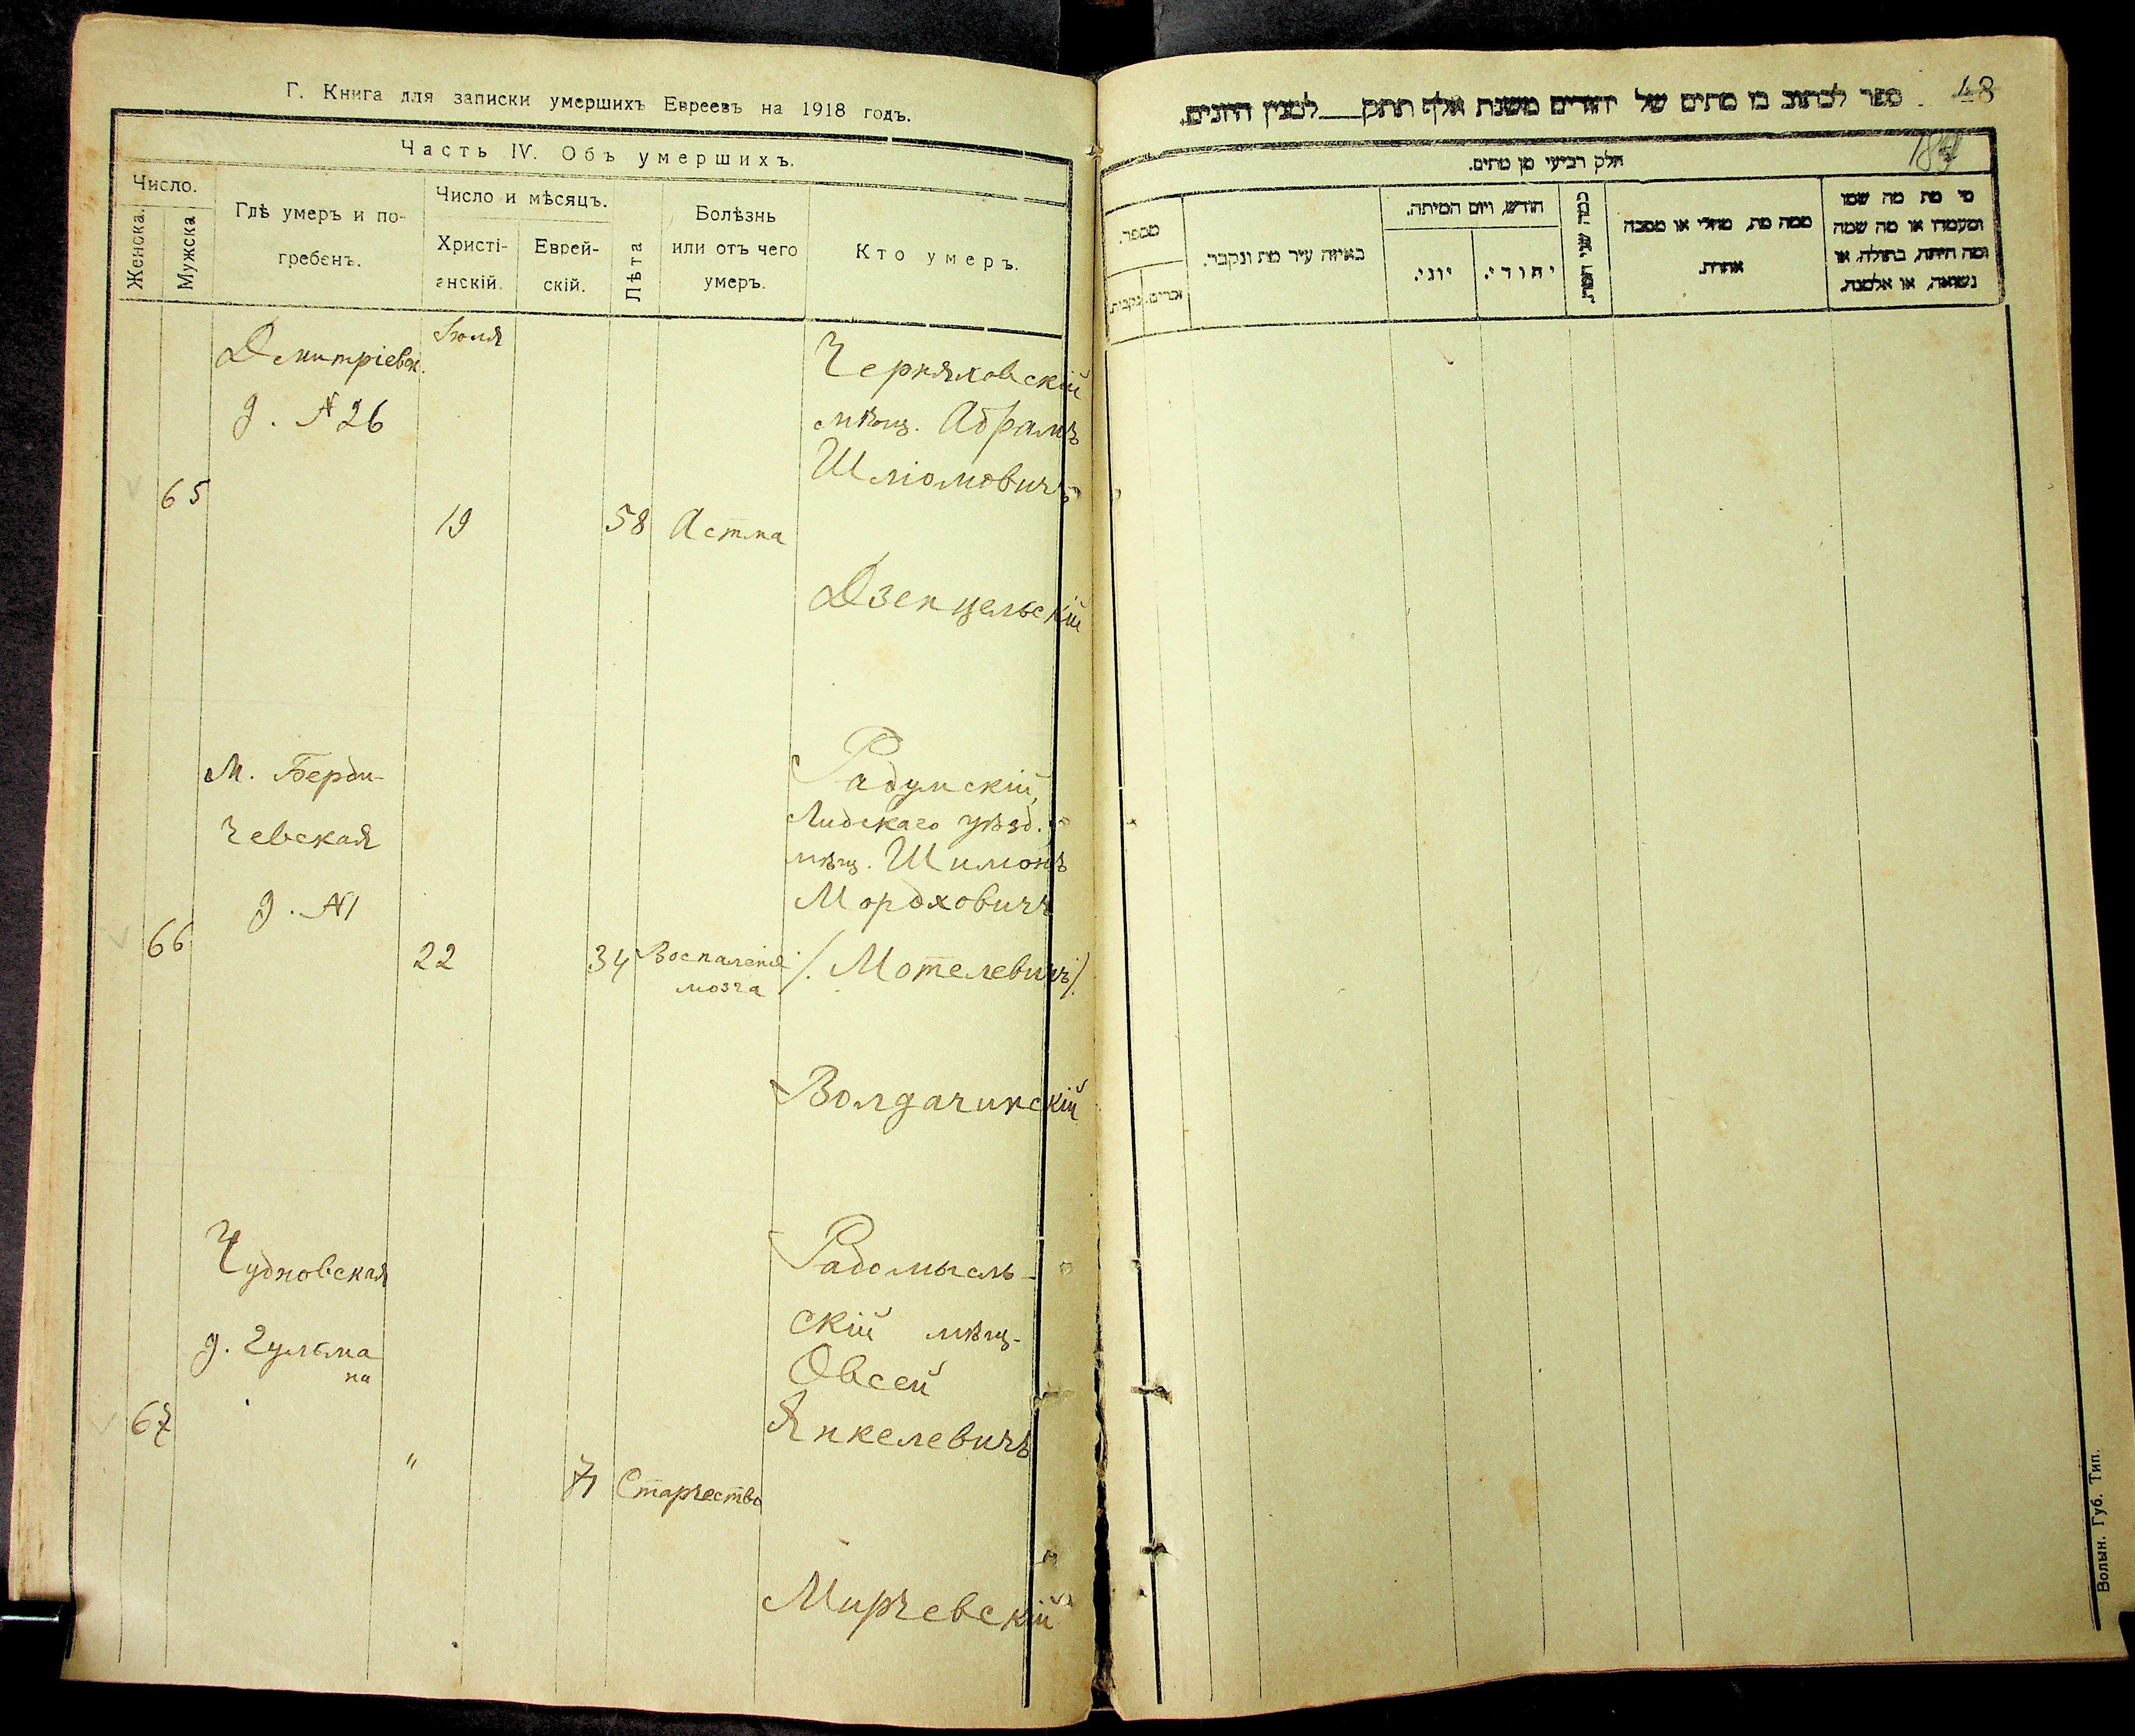 Г. Книга для записки умершихъ Евреевъ на 1918 годъ.
Часть IV. Объ умершихъ.
Число.
Женска.
Мужска
Гдѣ умеръ и по-
гребенъ.
Число и мѣсяцъ.
Христі-
анскій.
Еврей-
скій.
Лѣта
Болѣзнь
или отъ чего
умеръ.
Кто умеръ.
65
Дмитріевск.
д. № 26
Іюля
19
58
Астма
Черняховскій
мѣщ. Абрамъ
Шліомовичъ
Дзенцельскій
66
М. Берди-
чевская
д. № 1
22
34
Воспаленіе
мозга
Радунскій,
Лидскаго уѣзд.
мѣщ. Шимонъ
Мордховичъ
/. Мотелевичъ/.
Волдачинскій
67
Чудновская
д. Гульма
на
"
71
Старчество
Радомысль-
скій мѣщ.
Овсей
Янкелевичъ
Мирчевскій
48
ספר לכתוב בו מתים של יהודים משנת אלף תתק למנין היונים.
חלק רביעי מן מתים.
מספר.
זכרים.
נקבות.
באיזה עיר מת ונקבר.
חודש, ויום המיתה.
יוני.
יהודי.
כמה שני המת.
ממה מת, מחלי או מסבה
אחרת.
מי מת מה שמו
ומעמדו או מה שמה
ומה היתה, בתולה, או
נשואה, או אלמנה.
Волын. Губ. Тип.